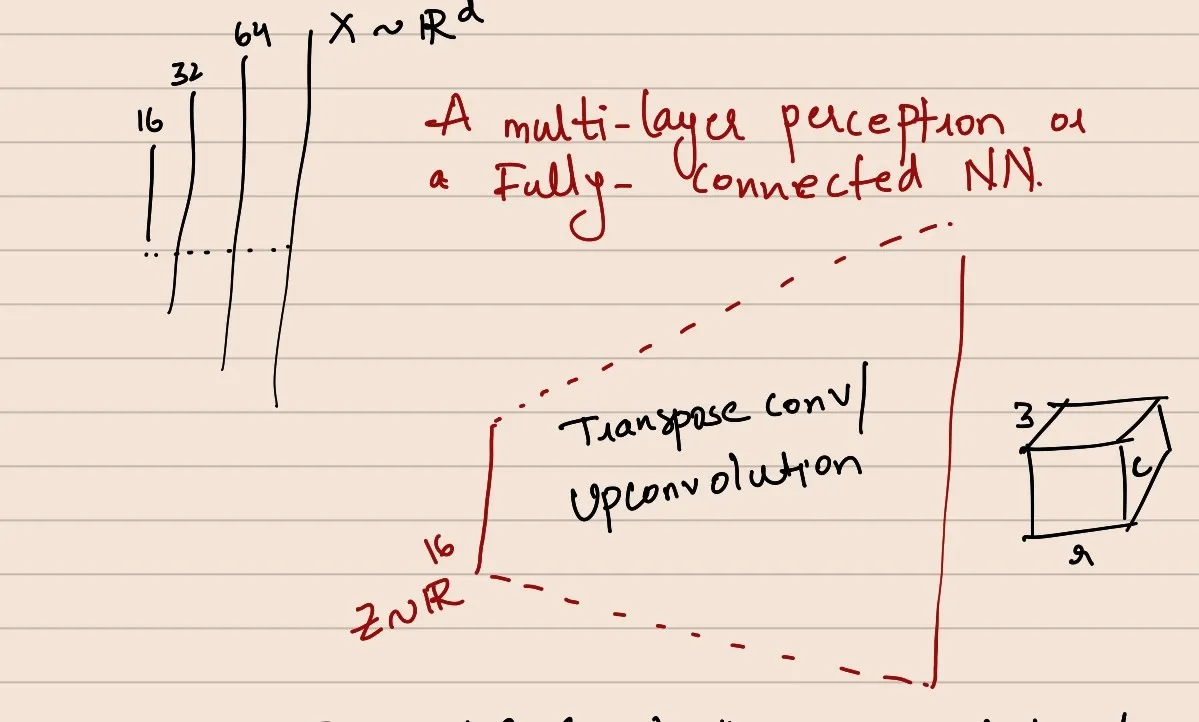 64
X ~ ℝᵈ
32
16
A multi-layer perception or
a Fully-connected NN.
Transpose conv/
Upconvolution
3
c
r
16
Z ~ ℝ